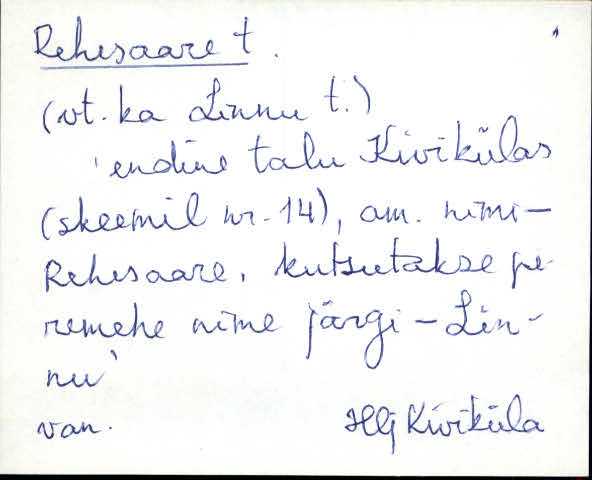 Rehesaare t.
(vt. ka Linnu t.)
'endine talu Kivikülas
(skeemil nr. 14), am. nimi –
Rehesaare, kutsutakse pe-
remehe nime järgi – Lin-
nu'
van. Hlj Kiviküla